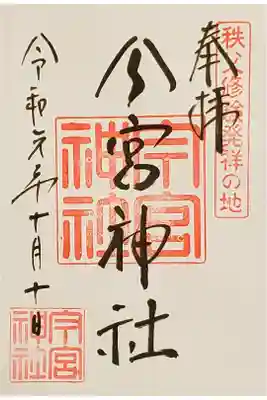 奉拝
秩父修験発祥の地
今宮神社
今宮神社
令和元年十月十日
今宮神社